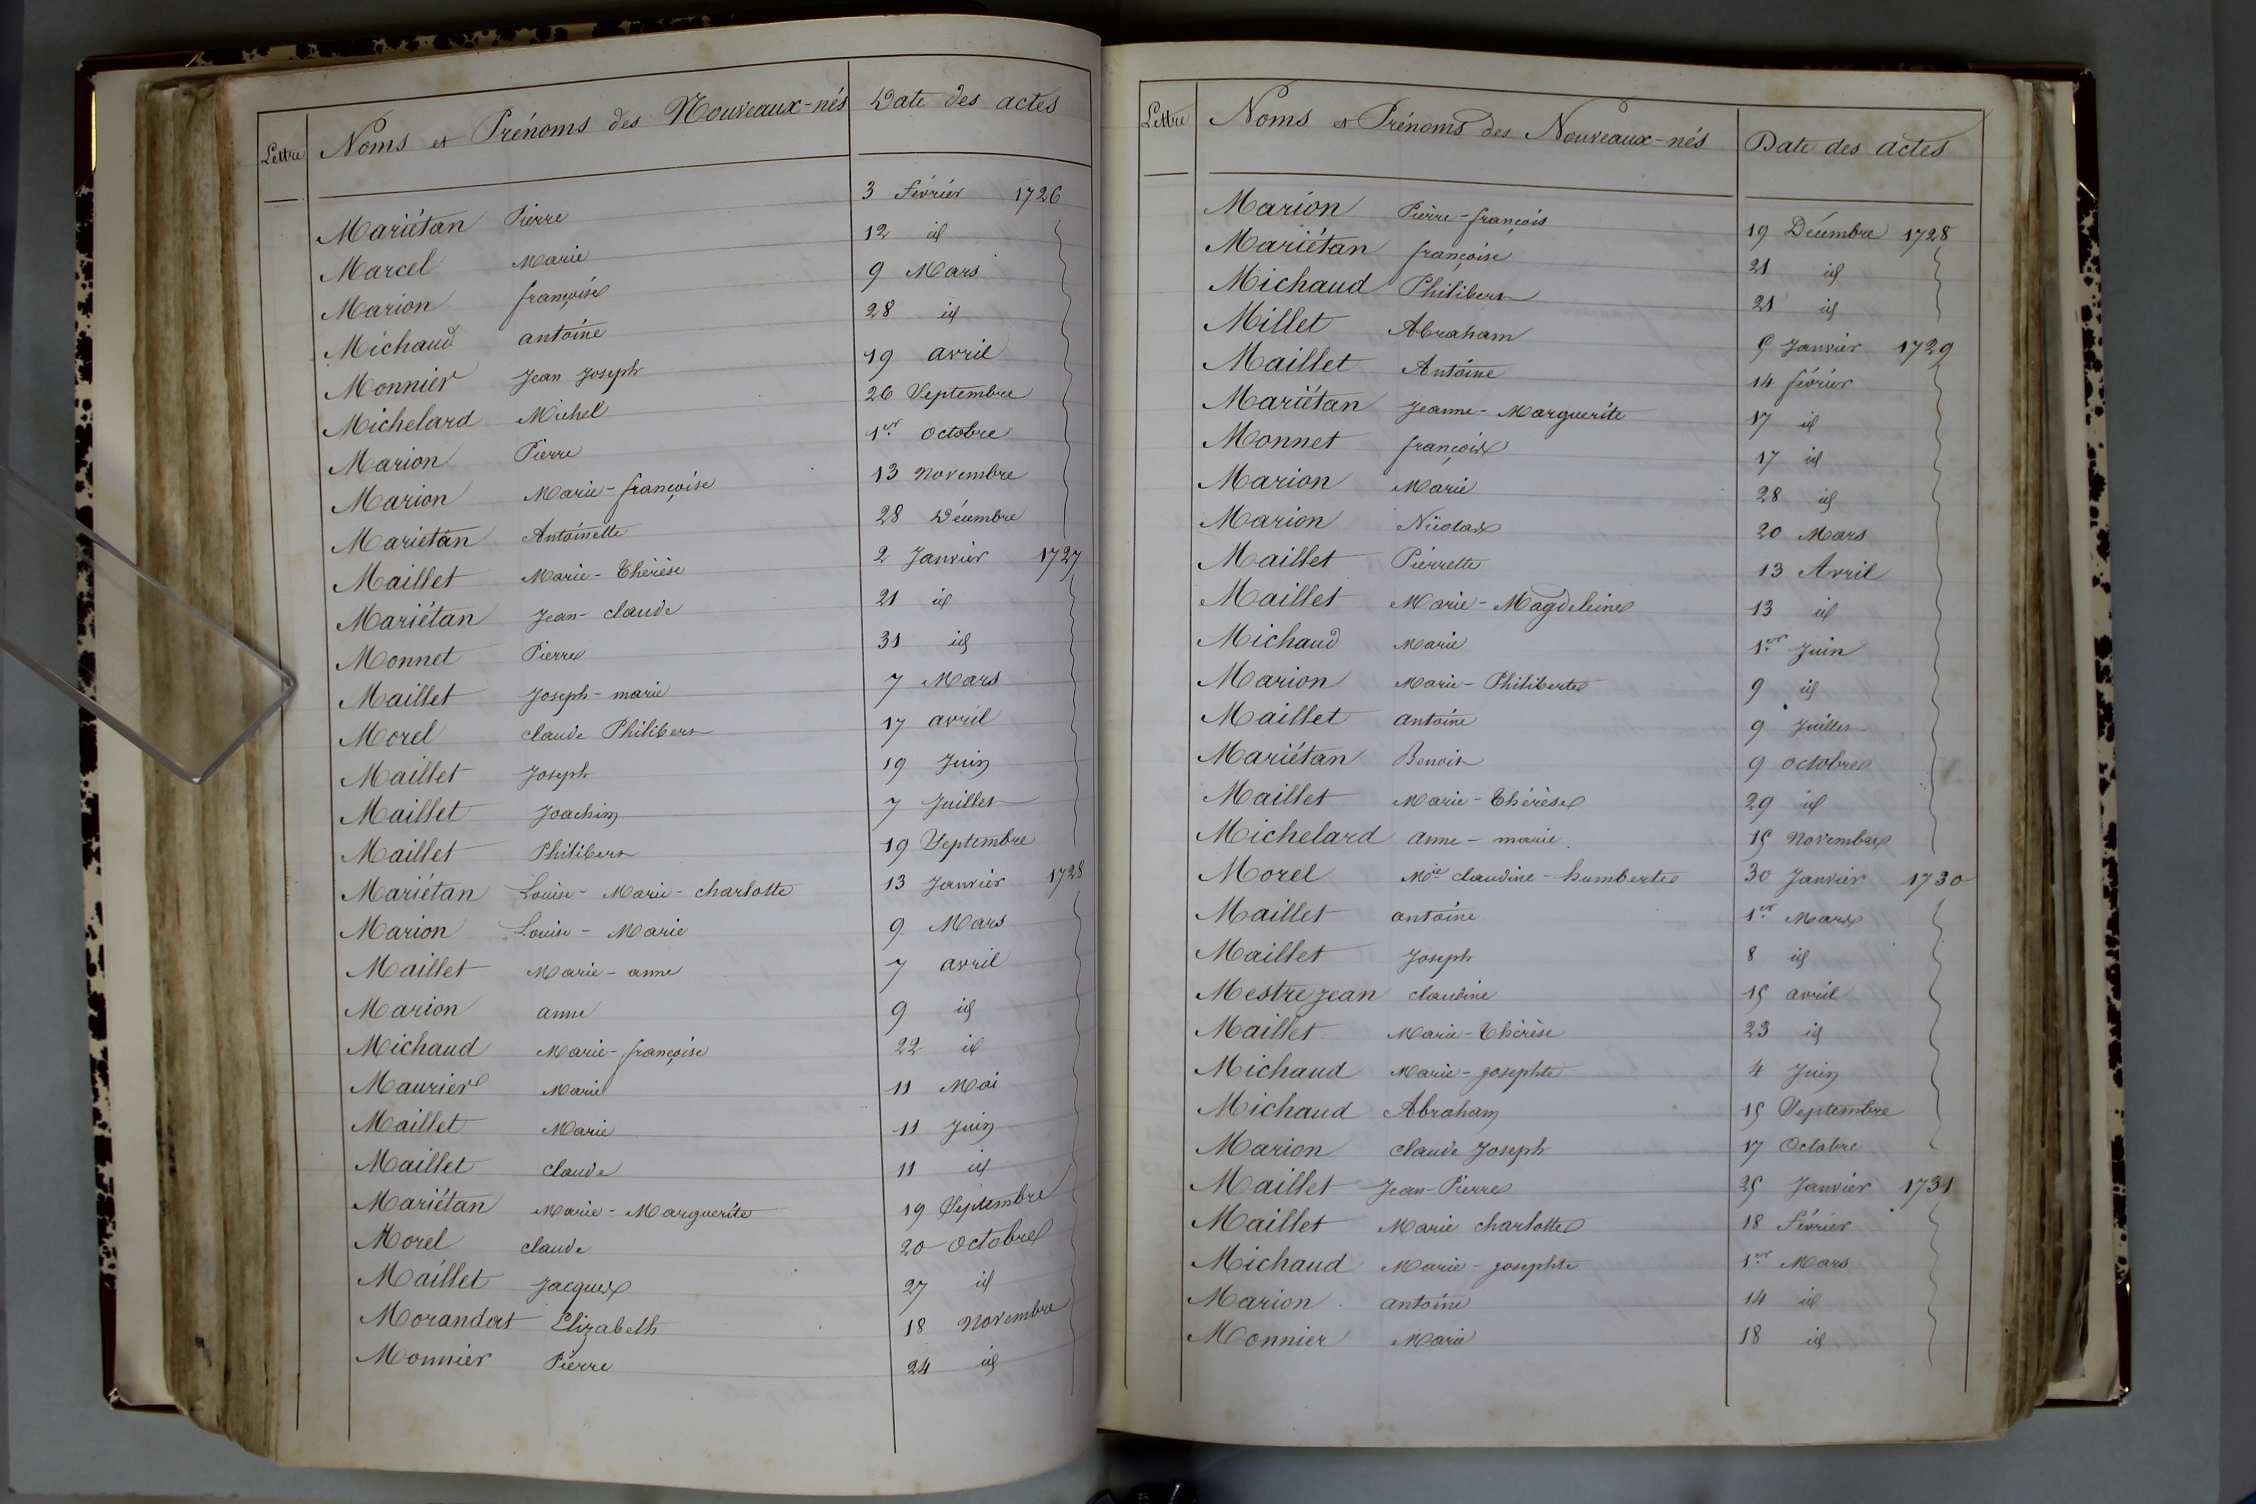 Lettre Noms et Prénoms des Nouveaux-nés Date des actes
Mariétan Pierre 3 février 1726
Marcel Marie 12 id
Marion françoise 9 Mars
Michaud antoine 28 id
Monnier Jean Joseph 19 avril
Michelard Michel 26 Septembre
Marion Pierre 1er octobre
Marion Marie-françoise 13 novembre
Marietan Antoinette 28 Décembre
Maillet Marie-Thérèse 2 Janvier 1727
Mariétan Jean-claude 21 id
Monnet Pierre 31 id
Maillet Joseph-marie 7 Mars
Morel claude Philibert 17 avril
Maillet Joseph 19 Juin
Maillet Joachim 7 Juillet
Maillet Philibert 19 Septembre
Mariétan Louise-Marie-charlotte 13 Janvier 1728
Marion Louise-Marie 9 Mars
Maillet Marie-anne 7 avril
Marion anne 9 id
Michaud Marie-françoise 22 id
Maurier Marie 11 Mai
Maillet Marie 11 Juin
Maillet claude 11 id
Mariétan Marie-Marguerite 19 Septembre
Morel claude 20 octobre
Maillet Jacques 27 id
Morandet Elizabeth 18 Novembre
Monnier Pierre 24 id
Lettre Noms et Prénoms des Nouveaux-nés Date des actes
Marion Pierre-françois 19 Décembre 1728
Mariétan françoise 21 id
Michaud Philibert 21 id
Millet Abraham 5 Janvier 1729
Maillet Antoine 14 février
Mariétan Jeanne-Marguerite 17 id
Monnet françois 17 id
Marion Marie 28 id
Marion Nicolas 20 Mars
Maillet Pierrette 13 Avril
Maillet Marie-Magdeleine 13 id
Michaud Marie 1er Juin
Marion Marie-Philiberte 9 id
Maillet antoine 9 Juillet
Mariétan Benoit 9 octobre
Maillet Marie-Thérèse 29 id
Michelard anne-marie 15 Novembre
Morel Mie claudine-humberte 30 Janvier 1730
Maillet antoine 1er Mars
Maillet Joseph 8 id
Mestrejean claudine 15 avril
Maillet Marie-Thérèse 23 id
Michaud Marie-josephte 4 Juin
Michaud Abraham 15 Septembre
Marion claude Joseph 17 Octobre
Maillet Jean-Pierre 25 Janvier 1731
Maillet Marie charlotte 18 Février
Michaud Marie-josephte 1er Mars
Marion antoine 14 id
Monnier Marie 18 id